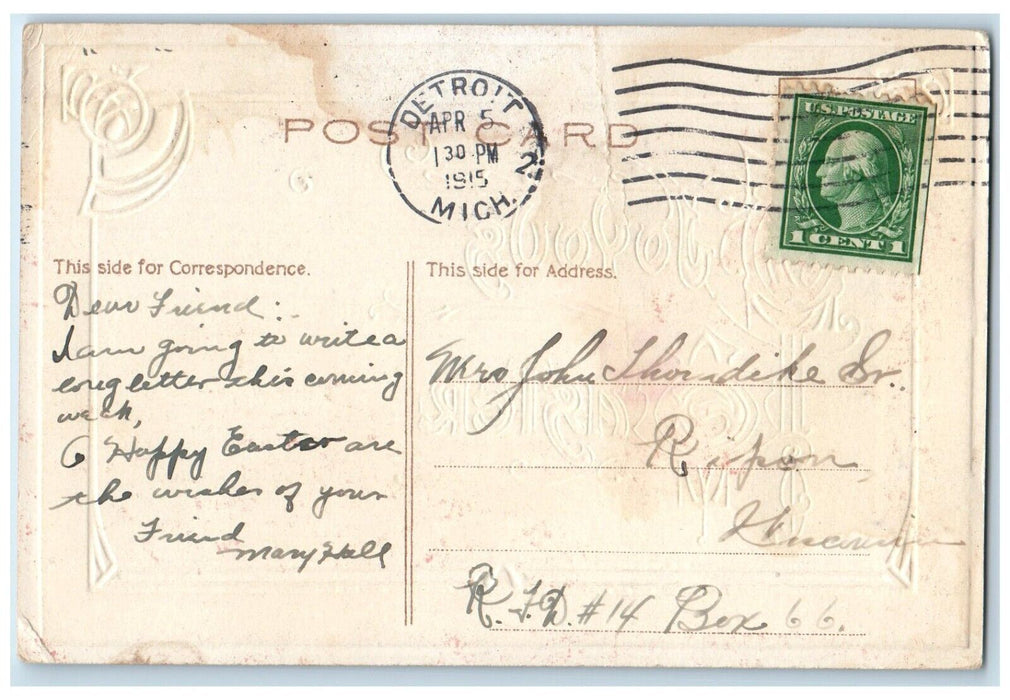 POST CARD
DETROIT
APR 5
1 30 PM
1915
MICH.
2
U.S. POSTAGE
1 CENT 1
This side for Correspondence.
Dear Friend:
I am going to write a
long letter this coming
week,
A Happy Easter are
the wishes of your
Friend
Mary Hall
This side for Address.
Mrs John Thorndike Sr.
Ripon,
Wisconsin
R.F.D. #14 Box 66.